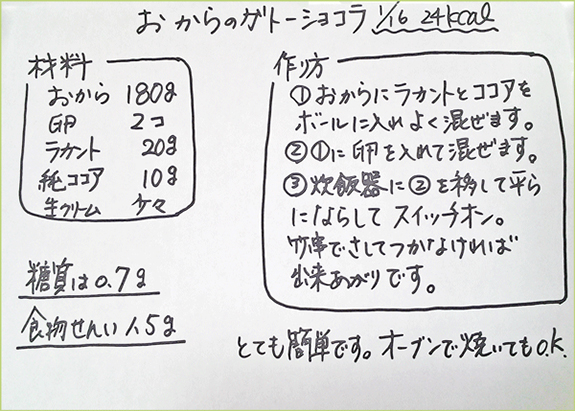 おからのガトーショコラ 1/16 24kcal
材料
おから 180g
卵 2コ
ラカント 20g
純ココア 10g
生クリーム 少々
糖質は0.7g
食物せんい1.5g
作り方
①おからにラカントとココアを
ボールに入れよく混ぜます。
②①に卵を入れて混ぜます。
③炊飯器に②を移して平ら
にならしてスイッチオン。
竹串でさしてつかなければ
出来あがりです。
とても簡単です。オーブンで焼いてもO.K.